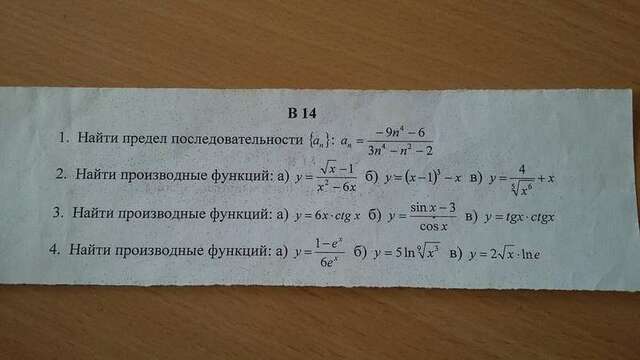 В 14
1. Найти предел последовательности {aₙ}: aₙ = (−9n⁴ − 6)/(3n⁴ − n² − 2)
2. Найти производные функций: а) y = (√x − 1)/(x² − 6x) б) y = (x − 1)³ − x в) y = 4/⁵√x⁶ + x
3. Найти производные функций: а) y = 6x · ctg x б) y = (sin x − 3)/cos x в) y = tgx · ctgx
4. Найти производные функций: а) y = (1 − eˣ)/6eˣ б) y = 5 ln ⁹√x³ в) y = 2√x · ln e